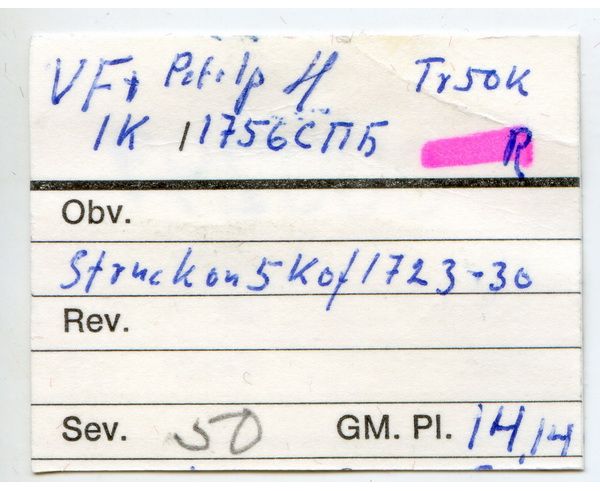 VF+ H Tr50K
1K 1756СПБ R
Obv.
Struck on 5 Kof 1723-30
Rev.
Sev. 50 GM. Pl. 14,14